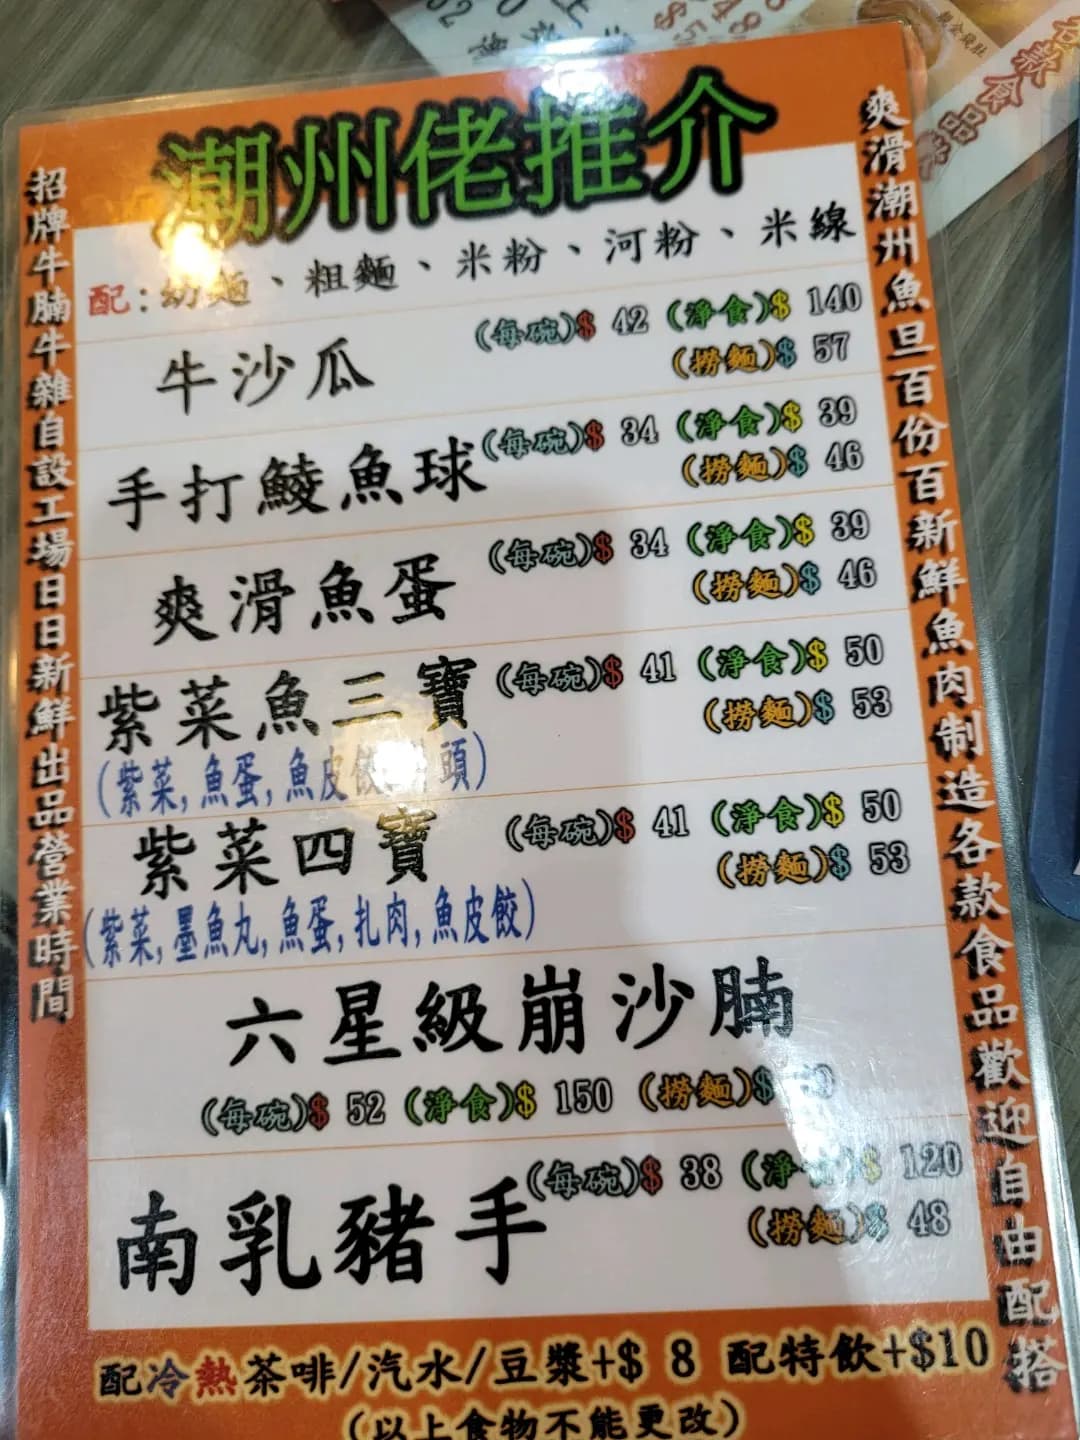 潮州佬推介
招牌牛腩牛雜自設工場日日新鮮出品營業時間
爽滑潮州魚旦百份百新鮮魚肉制造各款食品歡迎自由配搭
配:幼麵、粗麵、米粉、河粉、米線
牛沙瓜 (每碗)$ 42 (淨食)$ 140
(撈麵)$ 57
手打鯪魚球 (每碗)$ 34 (淨食)$ 39
(撈麵)$ 46
爽滑魚蛋 (每碗)$ 34 (淨食)$ 39
(撈麵)$ 46
紫菜魚三寶 (每碗)$ 41 (淨食)$ 50
(撈麵)$ 53
(紫菜,魚蛋,魚皮餃 頭)
紫菜四寶 (每碗)$ 41 (淨食)$ 50
(撈麵)$ 53
(紫菜,墨魚丸,魚蛋,扎肉,魚皮餃)
六星級崩沙腩
(每碗)$ 52 (淨食)$ 150 (撈麵)$
南乳豬手 (每碗)$ 38 (淨食)$ 120
(撈麵)$ 48
配冷熱茶啡/汽水/豆漿+$ 8 配特飲+$10
(以上食物不能更改)